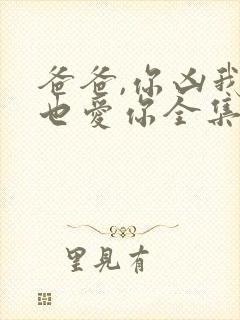 爸爸,你凶我
也爱你全集
里見有